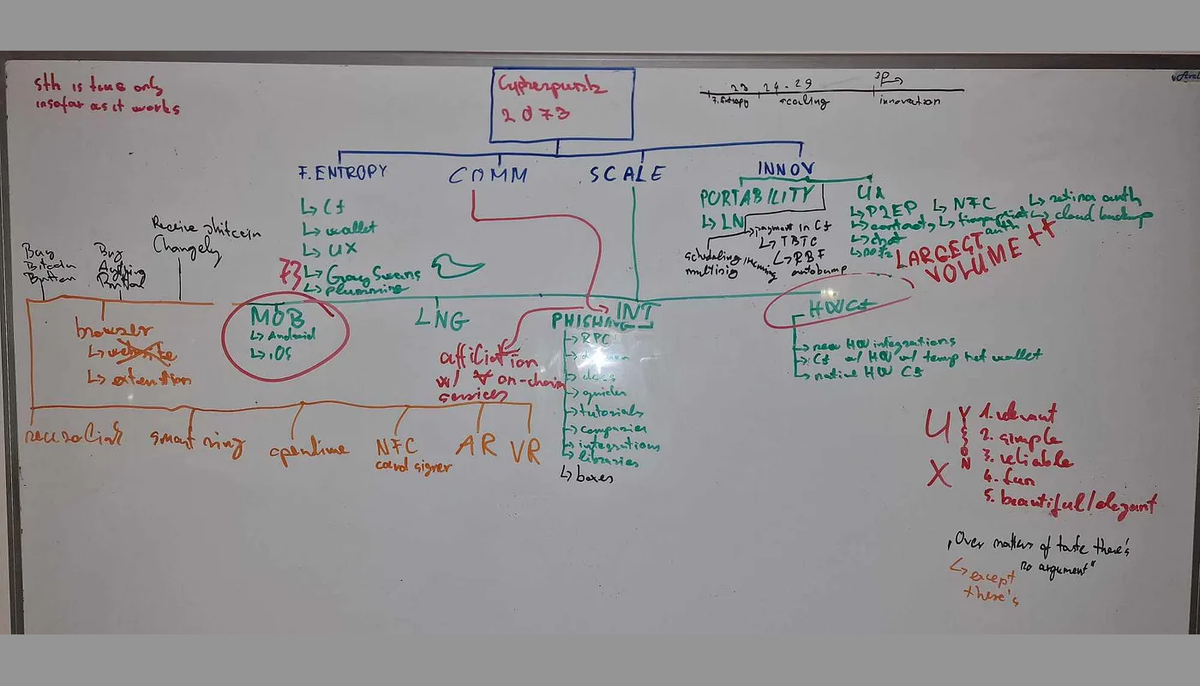 sth is true only
insofar as it works
Cypherpunk
2073
23 24-29
F. Entropy scaling innovation
F. ENTROPY
COMM
SCALE
INNOV
↳ CJ
↳ wallet
↳ UX
73
↳ Gray Swans
↳ plumming
PORTABILITY
↳ LN
↳ payment in CJ
↳ TBTC
↳ RBF
autobump
scheduling/
multisig
↳ P2EP
↳ contacts
↳ chat
↳ NFC
↳ fingerprint
auth
↳ retina auth
↳ cloud backup
LARGEST
VOLUME ++
Buy
Bitcoin
Button
Buy
Anything
Button
Receive shitcoin
Changely
browser
↳ website
↳ extention
MOB
↳ Android
↳ iOS
LNG
affiliation
w/ ∀ on-chain
services
INT
PHISHING
↳ RPC
↳ docs
↳ guides
↳ tutorials
↳ companies
↳ integrations
↳ libraries
↳ boxes
HWCJ
↳ new HW integrations
↳ CJ w/ HW w/ temp hot wallet
↳ native HW CJ
smart ring
opendime
NFC
card signer
AR
VR
UX
1. relevant
2. simple
3. reliable
4. fun
5. beautiful/elegant
„Over matters of taste there's
no argument"
↳ except
there's